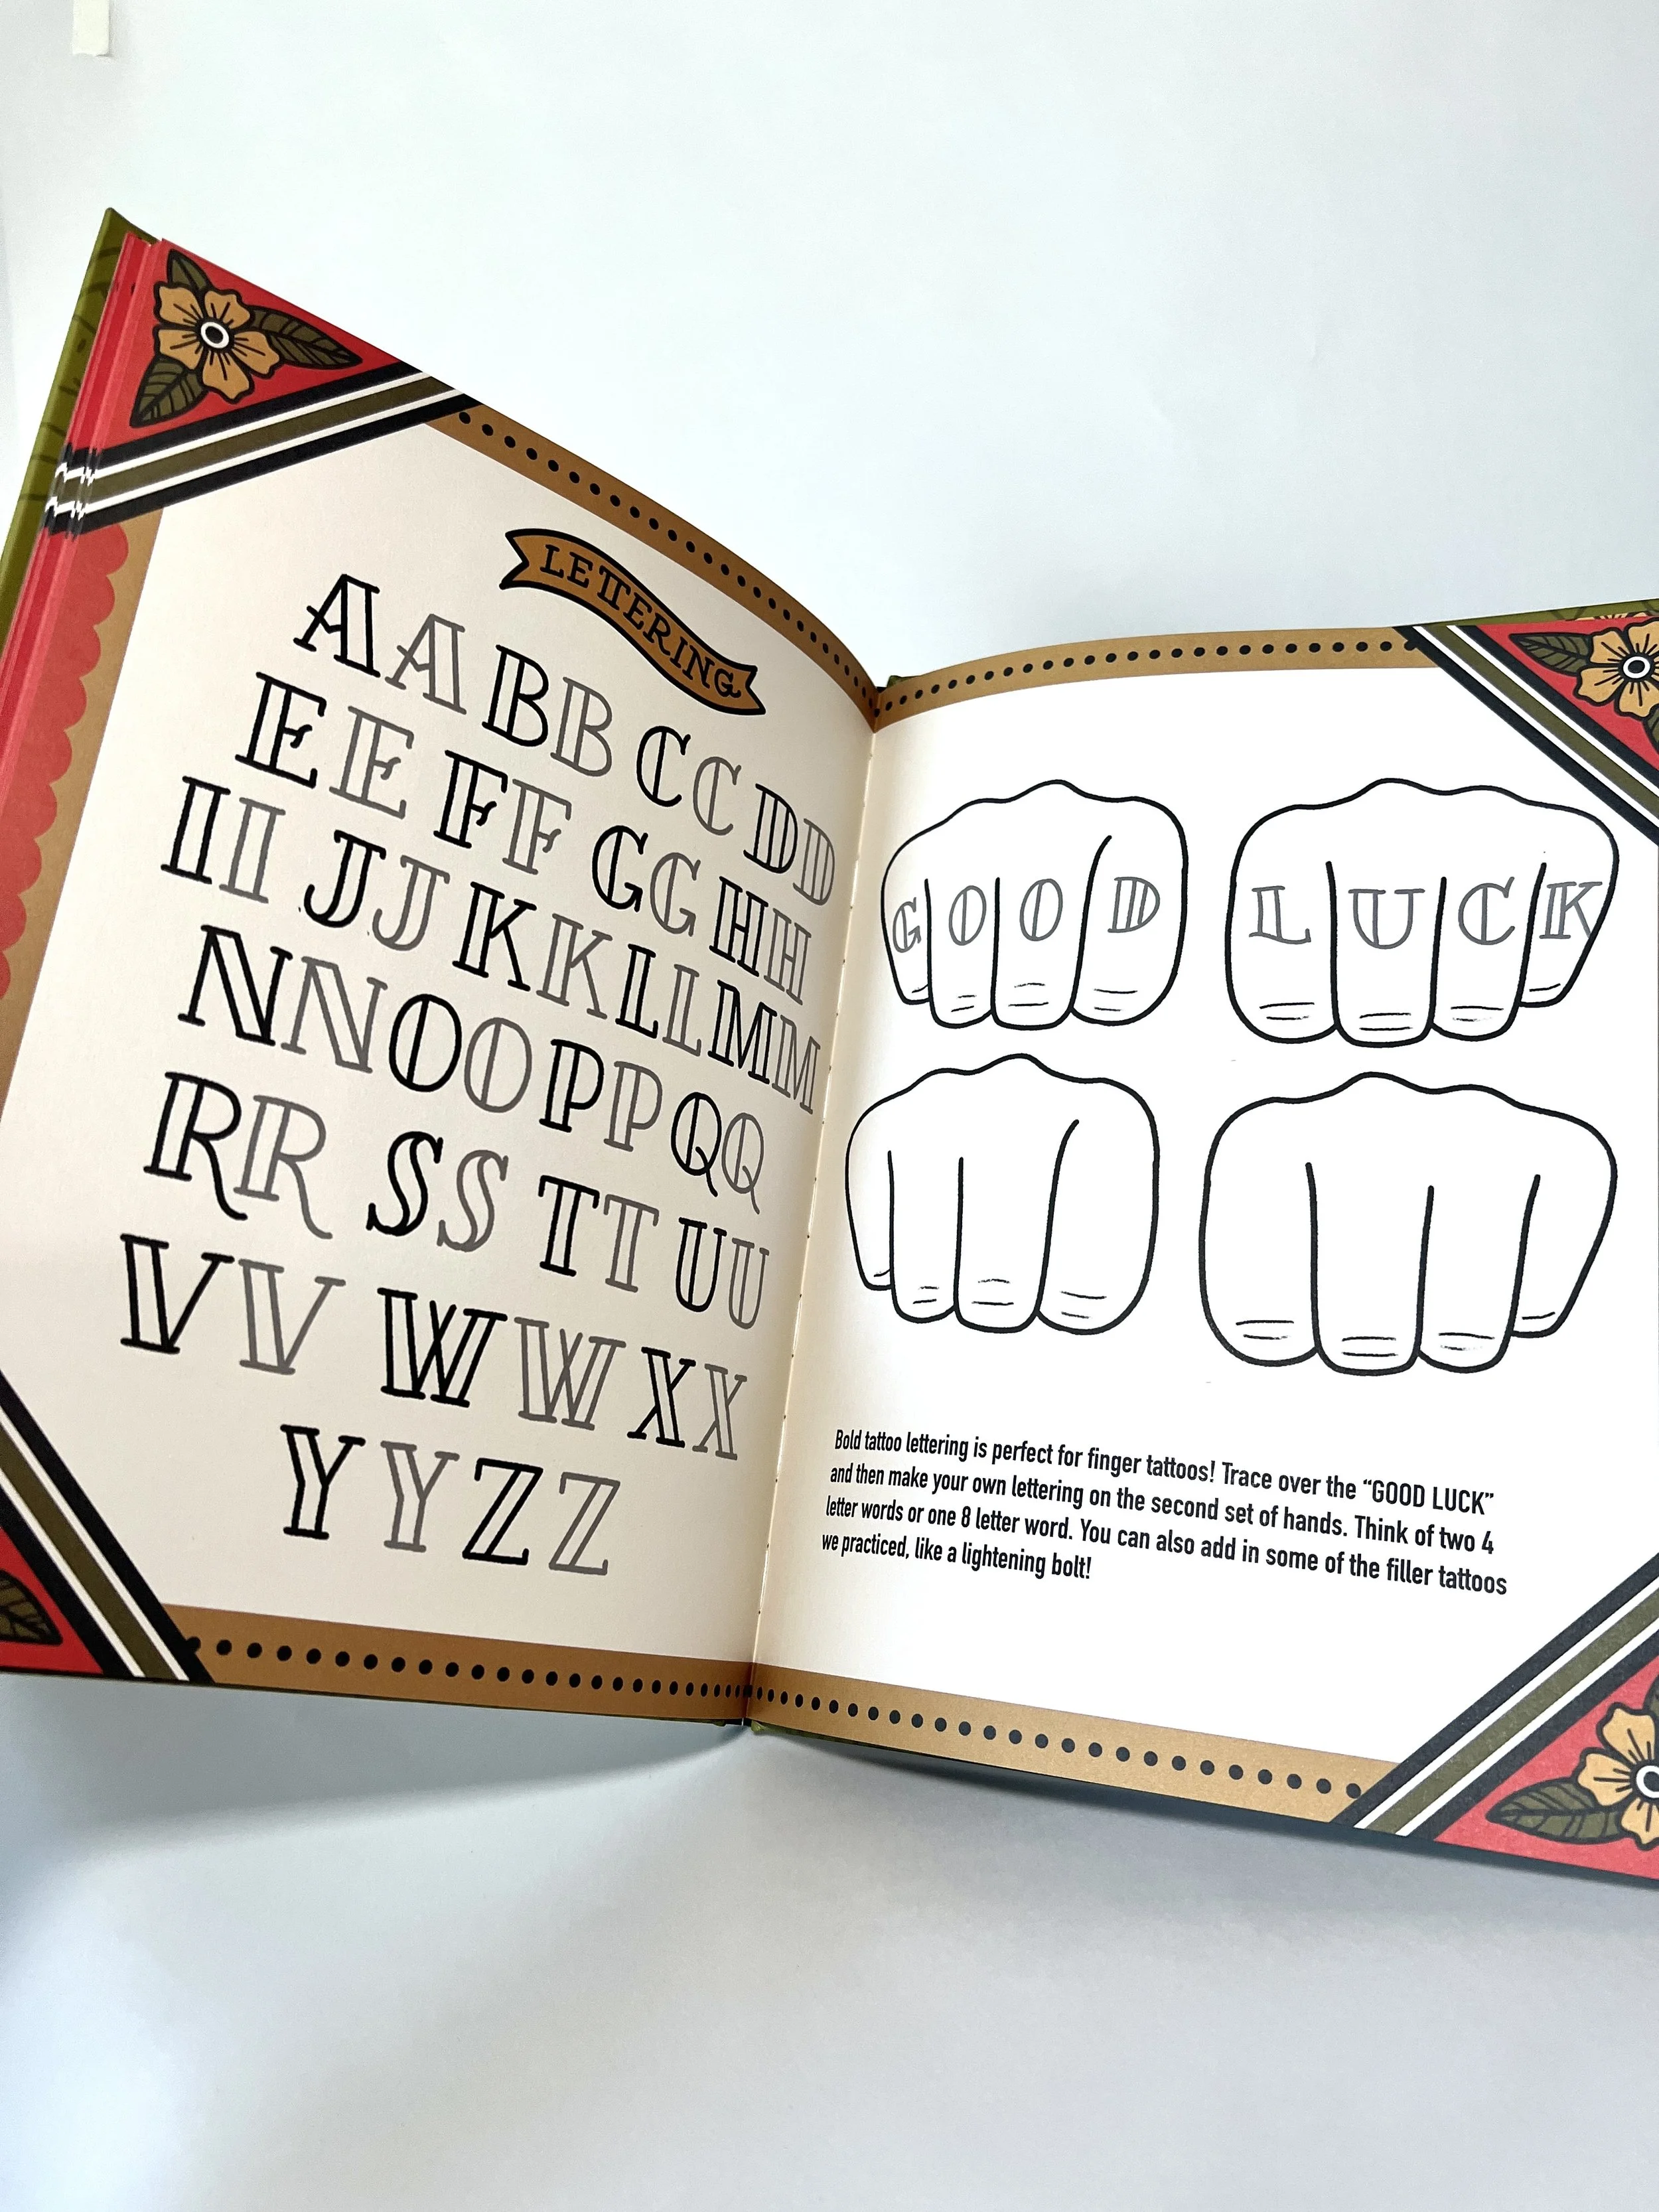 LETTERING
A A B B C C D D
E E F F G G H H
I I J J K K L L M M
N N O O P P Q Q
R R S S T T U U
V V W W X X
Y Y Z Z
G O O D L U C K
Bold tattoo lettering is perfect for finger tattoos! Trace over the “GOOD LUCK”
and then make your own lettering on the second set of hands. Think of two 4
letter words or one 8 letter word. You can also add in some of the filler tattoos
we practiced, like a lightening bolt!